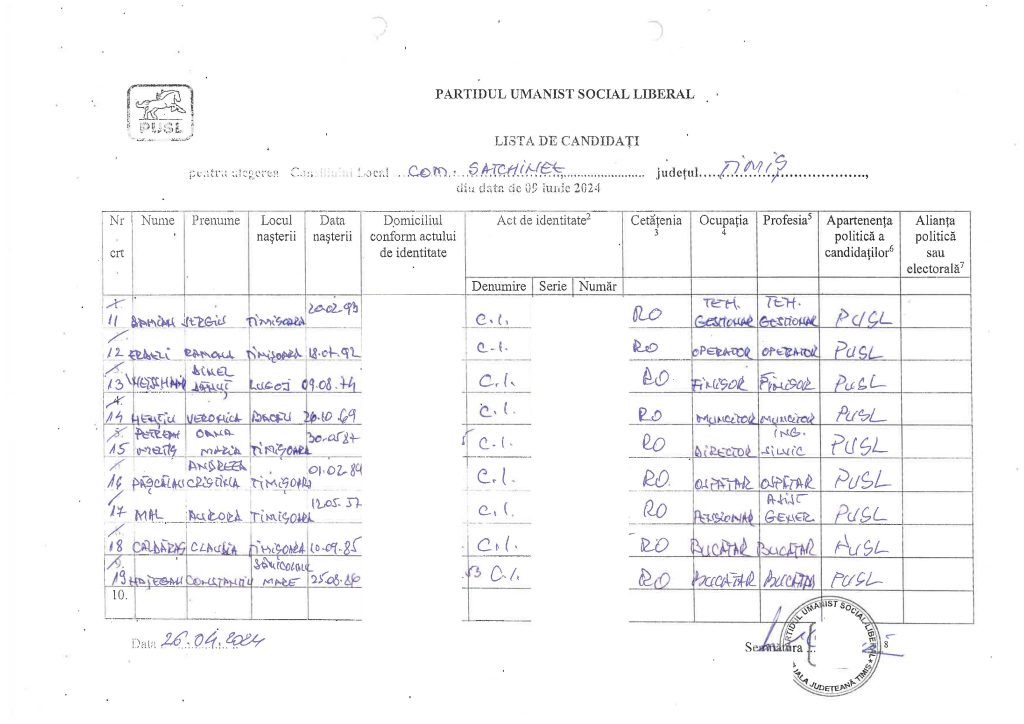 PUSL
PARTIDUL UMANIST SOCIAL LIBERAL
LISTA DE CANDIDAȚI
pentru alegerea Consiliului Local COM. SATCHINEZ județul TIMIȘ,
din data de 09 iunie 2024
Nr. crt Nume Prenume Locul nașterii Data nașterii Domiciliul conform actului de identitate Act de identitate2 Cetățenia3 Ocupația4 Profesia5 Apartenența politică a candidaților6 Alianța politică sau electorală7
Denumire Serie Număr
11 DAMIAN SERGIU TIMIȘOARA 20.02.93 C.I. RO TEH. GESTIONAR TEH. GESTIONAR PUSL
12 RAMONA TIMIȘOARA 18.07.92 C.I. RO OPERATOR OPERATOR PUSL
13 DINEL DĂNUȚ LUGOJ 09.08.74 C.I. RO PUSL
14 VERONICA BACĂU 20.10.69 C.I. RO MUNCITOR MUNCITOR PUSL
15 OANA MARIA TIMIȘOARA 30.05.87 C.I. RO DIRECTOR ING. SILVIC PUSL
16 PĂȘCĂLĂU ANDREEA CRISTINA TIMIȘOARA 01.02.89 C.I. RO OSPĂTAR OSPĂTAR PUSL
17 MAL AURORA TIMIȘOARA 12.05.57 C.I. RO PENSIONAR ASIST GENER. PUSL
18 CĂLDĂRAȘ CLAUDIA TIMIȘOARA 10.09.85 C.I. RO BUCĂTAR BUCĂTAR PUSL
19 HAȚEGAN CONSTANTIN SÂNICOLAU MARE 25.08.86 C.I. RO BUCĂTAR BUCĂTAR PUSL
10.
Data 26.04.2024
Semnătura 8
PARTIDUL UMANIST SOCIAL LIBERAL
JUDEȚEANĂ TIMIȘ